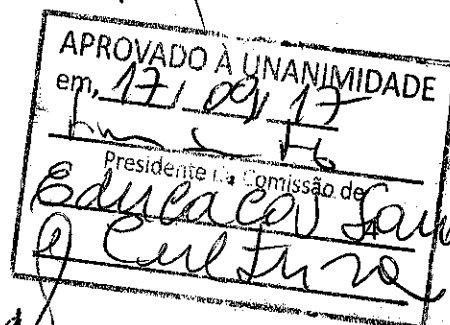 APROVADO À UNANIMIDADE
em, 17/ 09/ 17
Presidente da Comissão de
Educação
e Cultura